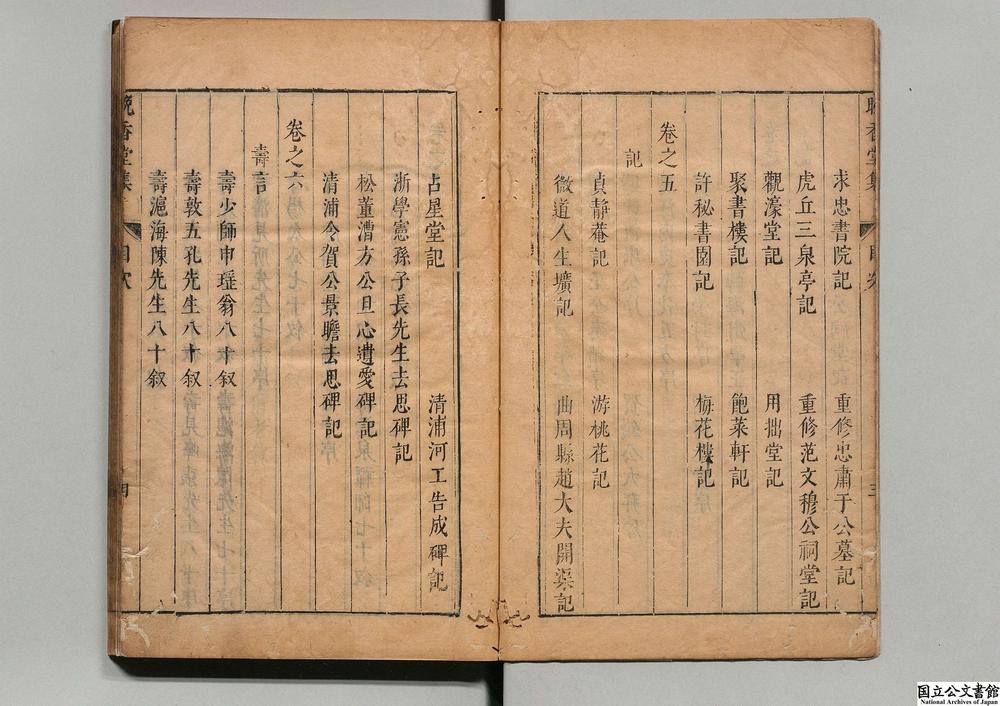 求忠書院記　重修忠肅于公墓記
虎丘三泉亭記　重修范文穆公祠堂記
觀濠堂記　用拙堂記
聚書樓記　飽菜軒記
許秘書園記　梅花樓記
卷之五
記
貞靜菴記　游桃花記
微道人生壙記　曲周縣趙大夫開渠記
占星堂記　清浦河工告成碑記
浙學憲孫子長先生去思碑記
松董漕方公旦心遺愛碑記
清浦令賀公景瞻去思碑記
卷之六
壽言
壽少師申瑶翁八十叙
壽敦五孔先生八十叙
壽滬海陳先生八十叙
晚香堂集　目次　四
国立公文書館
National Archives of Japan